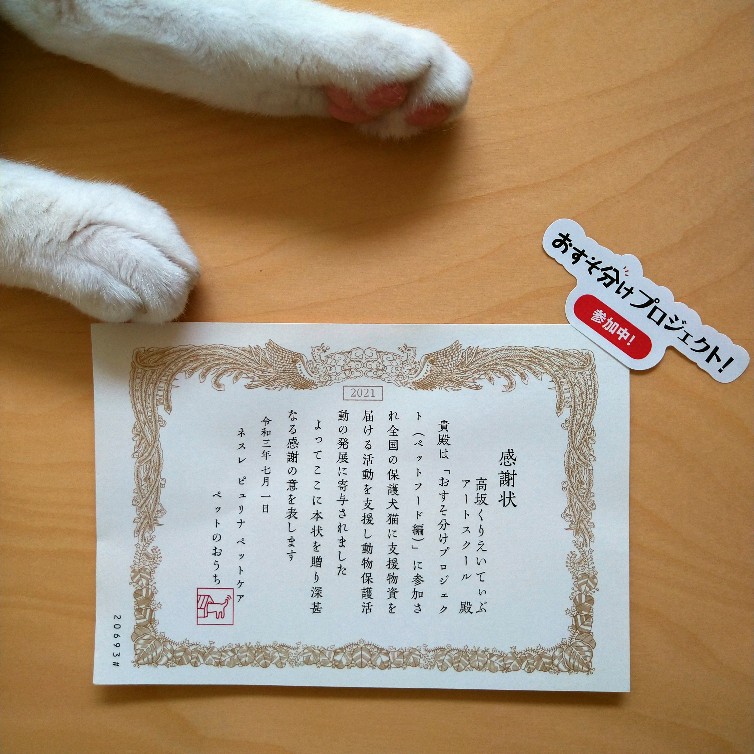 おすそ分けプロジェクト!
参加中!
2021
感謝状
高坂くりえいてぃぶ
アートスクール 殿
貴殿は「おすそ分けプロジェク
ト(ペットフード編)」に参加さ
れ全国の保護犬猫に支援物資を
届ける活動を支援し動物保護活
動の発展に寄与されました
よってここに本状を贈り深甚
なる感謝の意を表します
令和三年七月一日
ネスレ ピュリナ ペットケア
ペットのおうち
20693#